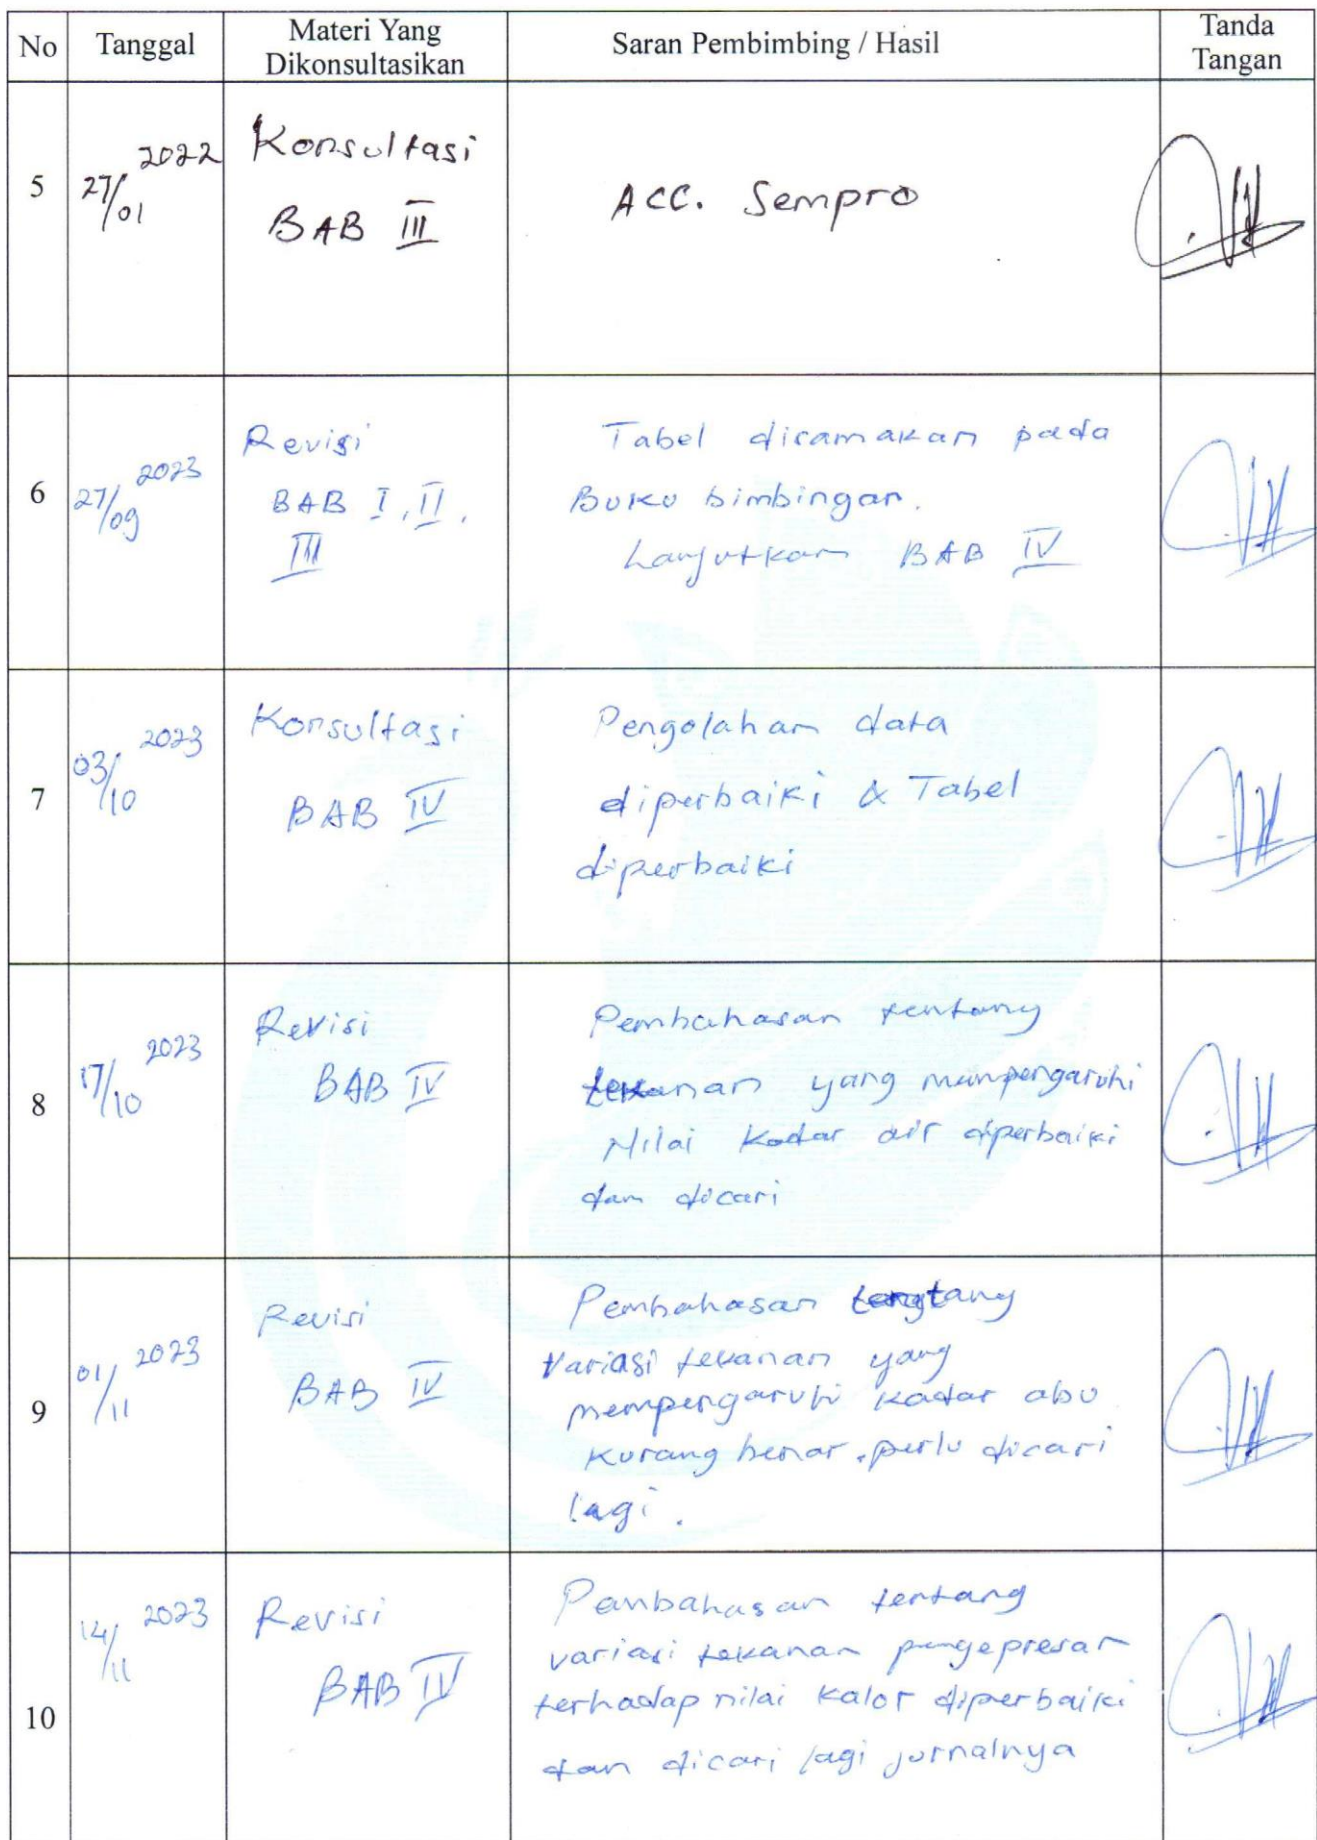 No Tanggal Materi Yang Dikonsultasikan Saran Pembimbing / Hasil Tanda Tangan
5
27/01 2022
Konsultasi
BAB III
ACC. Sempro
6
27/09 2023
Revisi
BAB I, II,
III
Tabel disamakan pada
Buku bimbingan.
Lanjutkan BAB IV
7
03/10 2023
Konsultasi
BAB IV
Pengolahan data
diperbaiki & Tabel
diperbaiki
8
17/10 2023
Revisi
BAB IV
Pembahasan tentang
tekanan yang mempengaruhi
Nilai Kadar air diperbaiki
dan dicari
9
01/11 2023
Revisi
BAB IV
Pembahasan tengtang
Variasi tekanan yang
mempengaruhi kadar abu
kurang benar. perlu dicari
lagi.
10
14/11 2023
Revisi
BAB IV
Pembahasan tentang
variasi tekanan pengepresan
terhadap nilai kalor diperbaiki
dan dicari lagi jurnalnya